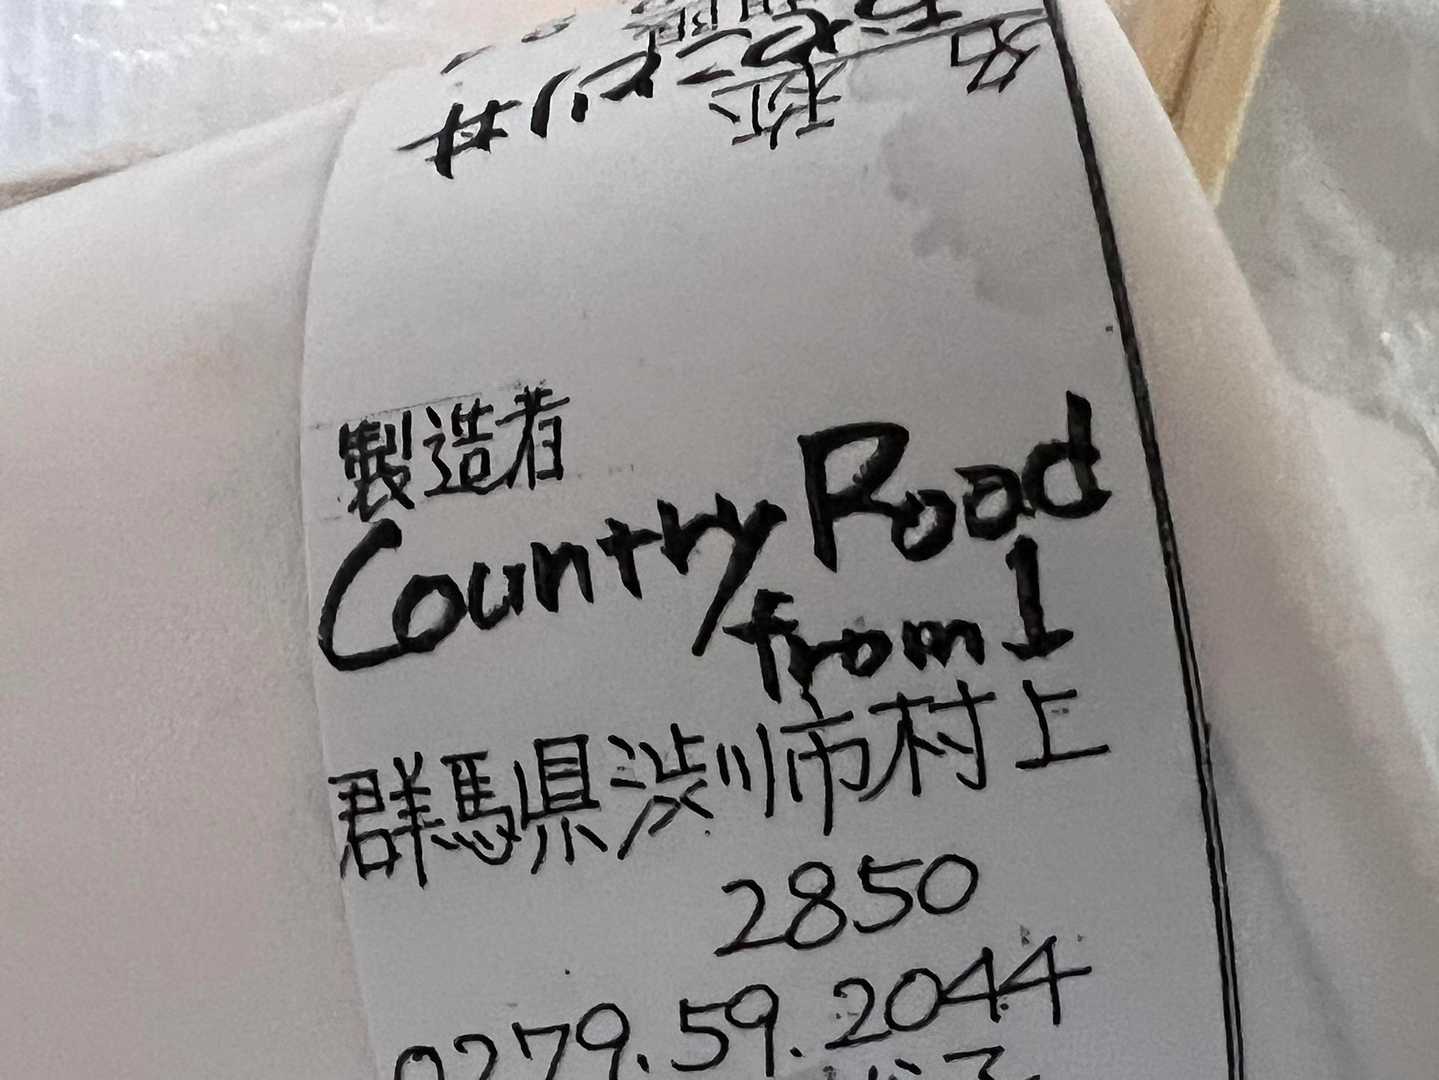 製造者
Country Road
from 1
群馬県渋川市村上
2850
0279.59.2044